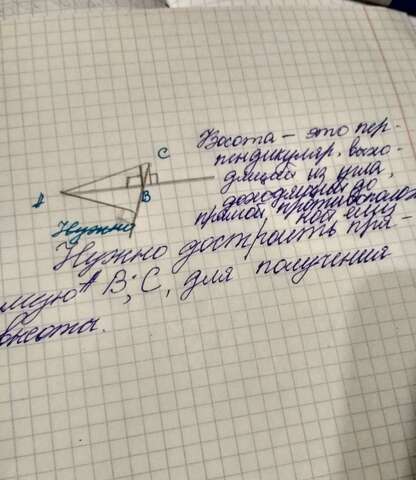 C
A
B
Высота – это пер-
пендикуляр, выхо-
дящий из угла,
доходящий до
прямой, противополож
ной ему
Нужно
Нужно достроить пря-
мую A B; C, для получения
высоты.